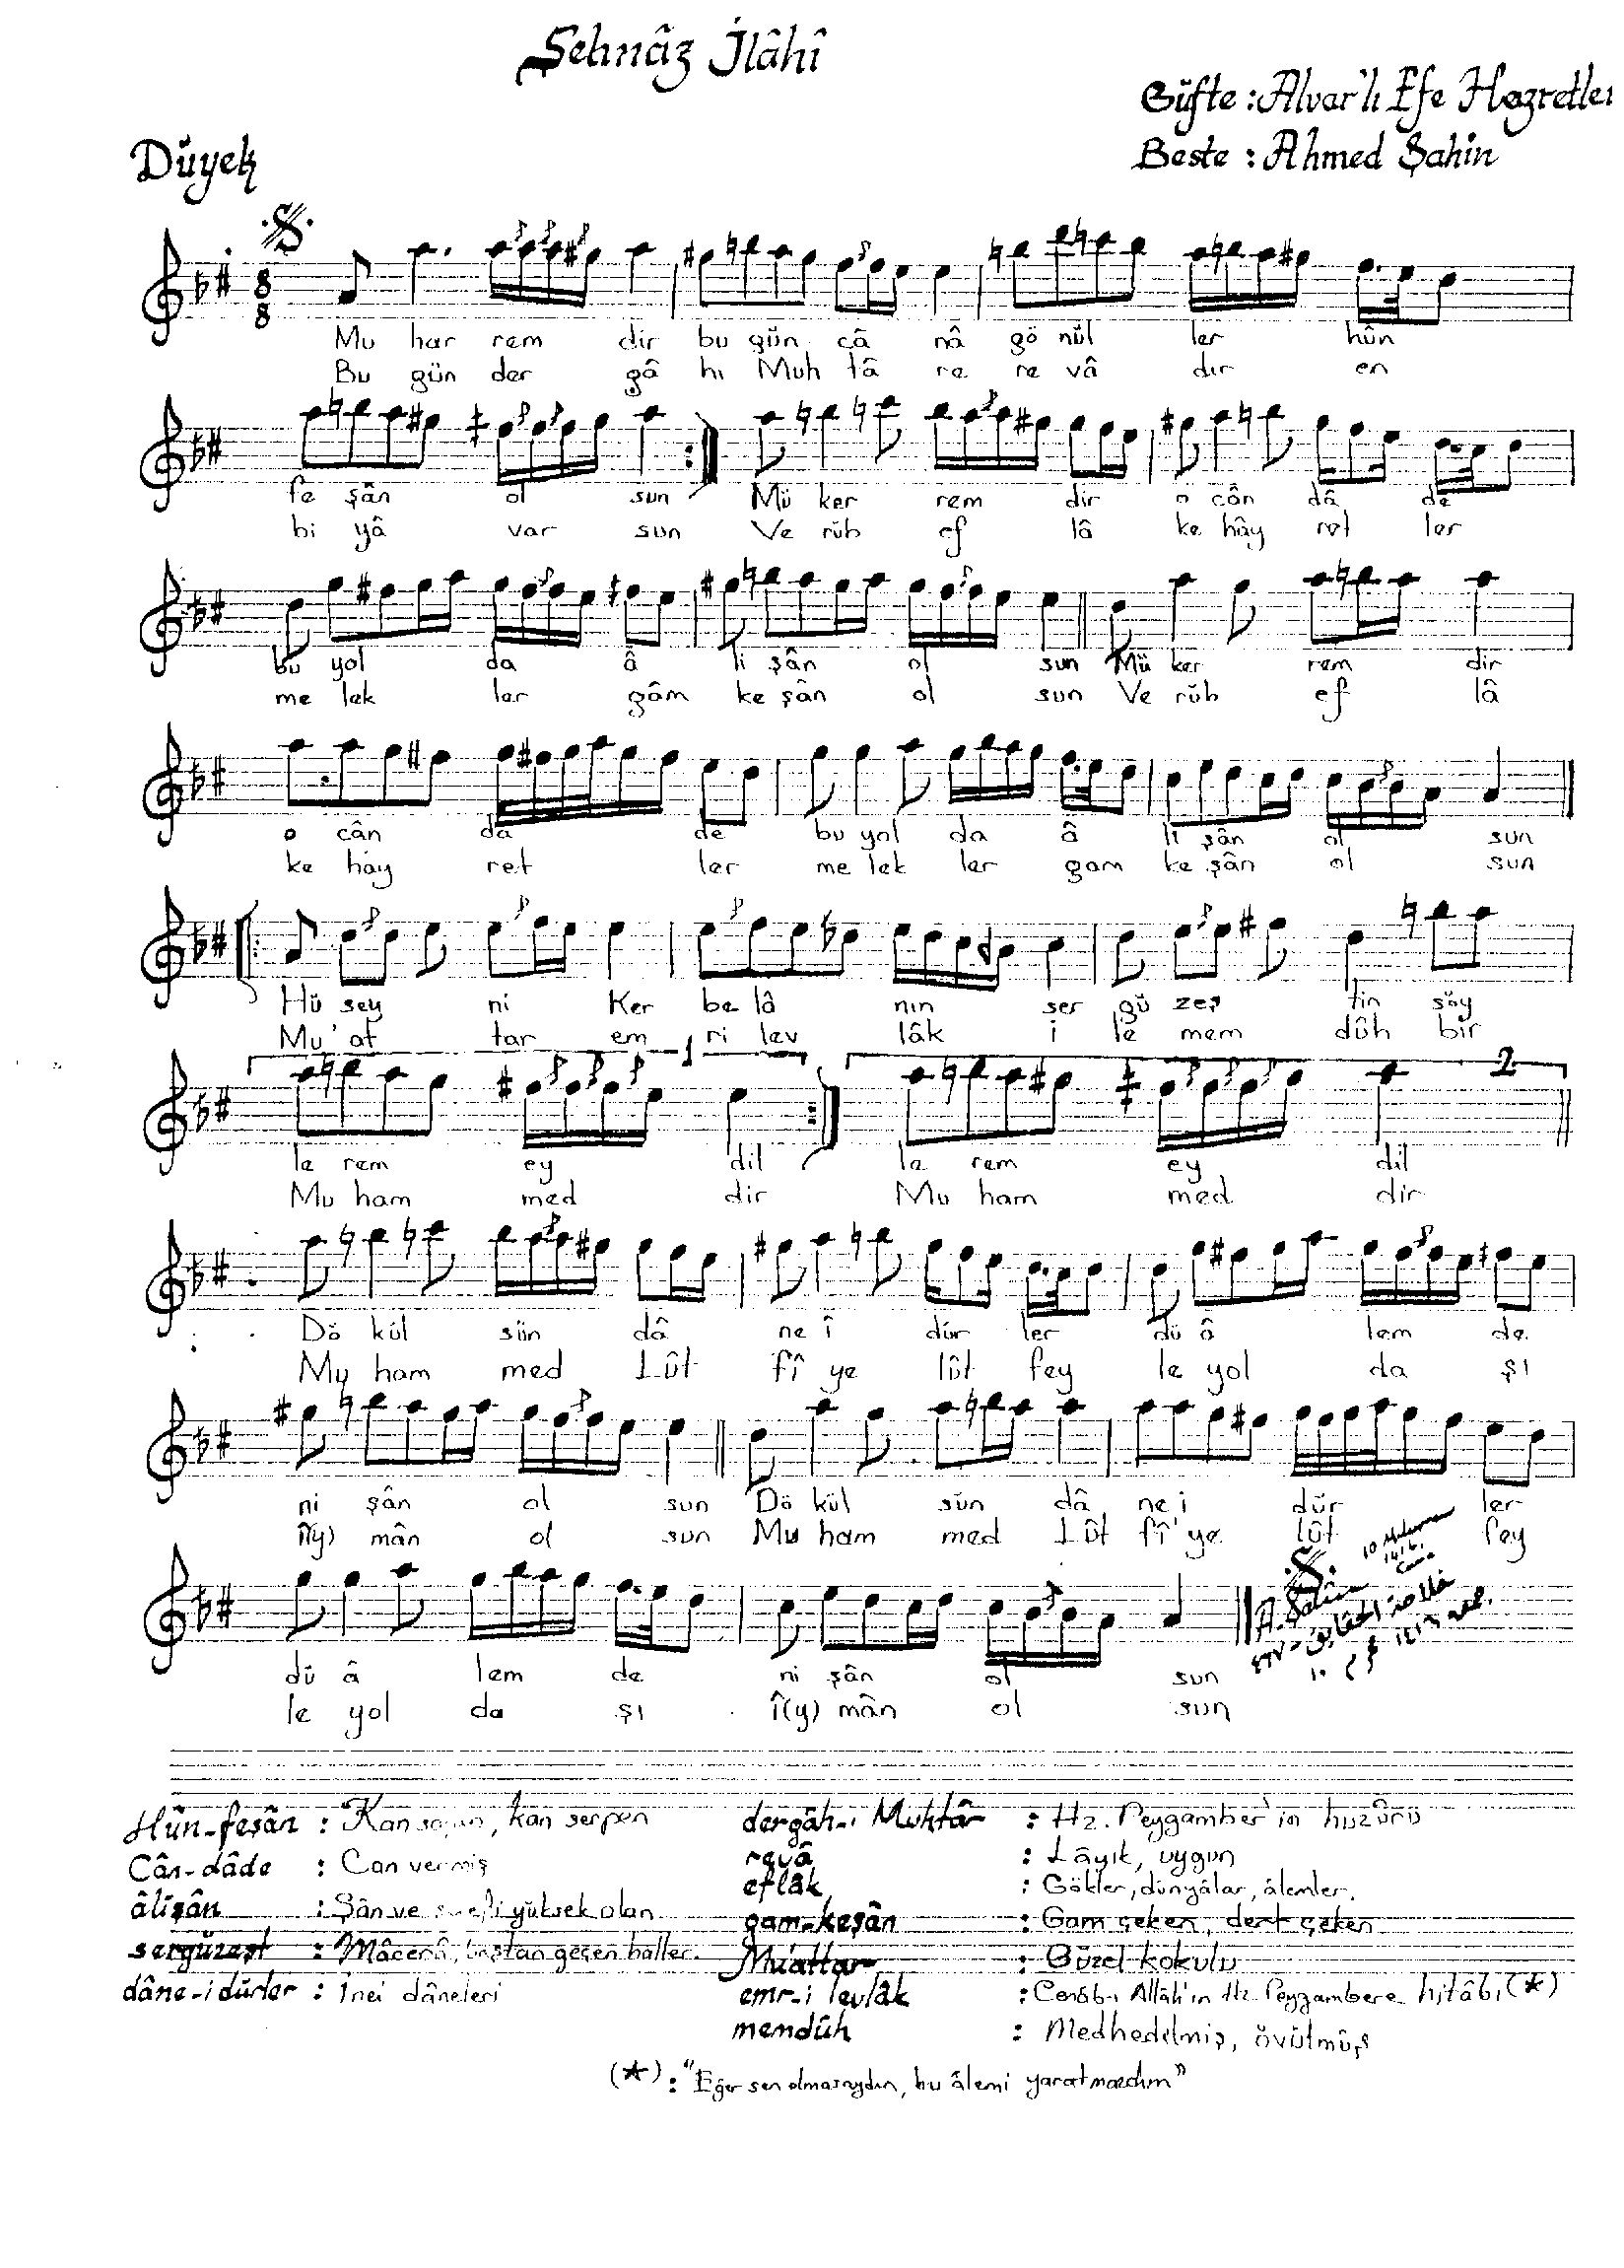 Şehnâz İlâhî
Güfte : Alvar'lı Efe Hazretler
Beste : Ahmed Şahin
Düyek
8
8
Mu har rem dir bu gün câ nâ gö nül ler hûn
Bu gün der gâ hı Muh tâ re re vâ dır en
fe şân ol sun Mü ker rem dir o cân dâ de
bi yâ var sun Ve rûh ef lâ ke hây ret ler
bu yol da â li şân ol sun Mü ker rem dir
me lek ler gâm ke şân ol sun Ve rûh ef lâ
o cân da de bu yol da â li şân ol sun
ke hây ret ler me lek ler gam ke şân ol sun
Hü sey ni Ker be lâ nın ser gü zeş tin söy
Mu' at tar em ri lev lâk i le mem dûh bir
1 2
le rem ey dil le rem ey dil
Mu ham med dir Mu ham med dir
Dö kül sün dâ ne î dür ler dü â lem de
Mu ham med Lût fî ye lût fey le yol da şı
ni şân ol sun Dö kül sün dâ ne i dür ler
î(y) mân ol sun Mu ham med Lût fî' ye lût fey
A. Şahin
dü â lem de ni şân ol sun
le yol da şı î(y) mân ol sun
Hûn-feşân : Kan saçan, kan serpen
Cân-dâde : Can vermiş
âlîşân : Şân ve şerefi yüksek olan
sergüzeşt : Mâcerâ, baştan geçen haller.
dâne-i dürler : İnci dâneleri
dergâh-ı Muhtâr : Hz. Peygamber'in huzûrü
revâ : Lâyık, uygun
eflâk : Gökler, dünyâlar, âlemler.
gam-keşân : Gam çeken, dert çeken
Mu'attar : Güzel kokulu
emr-i levlâk : Cenâb-ı Allâh'ın Hz. Peygambere hitâbı (*)
memdûh : Medhedilmiş, övülmüş
(*) : "Eğer sen olmasaydın, bu âlemi yaratmazdım"